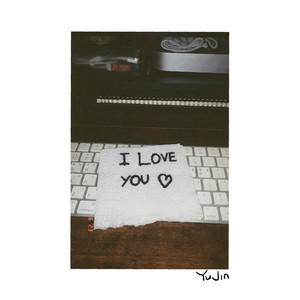 I LOVE
YOU ♡
YUJIN